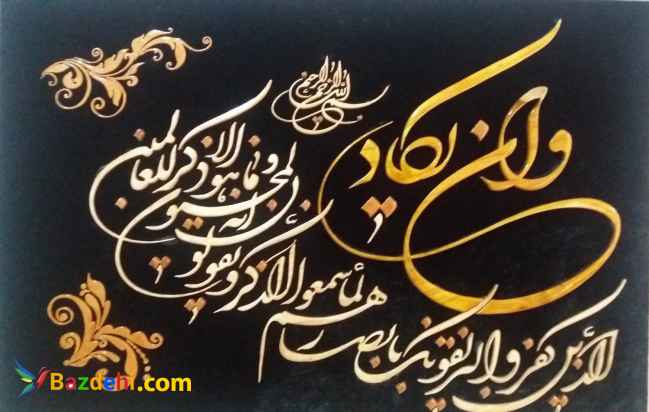 بسم الله الرحمن الرحیم
وان یکاد
الذین کفروا لیزلقونک بابصارهم
لما سمعوا الذکر و یقولون
انه لمجنون
و ما هو الا ذکر للعالمین
Bazdehi.com